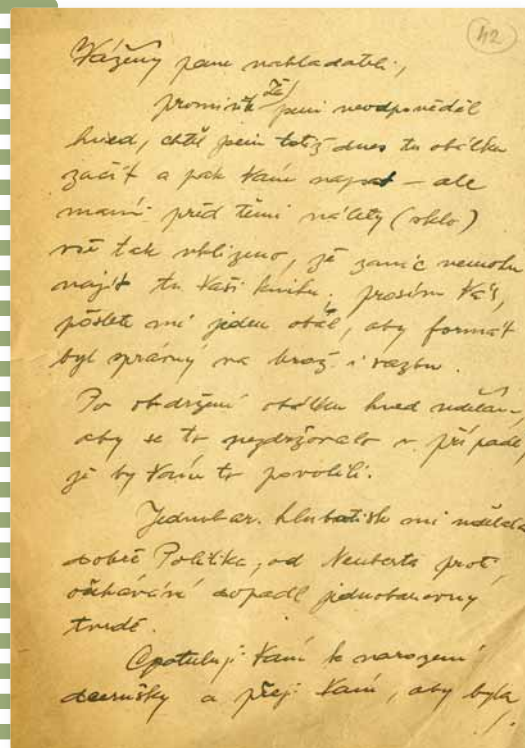 42
Vážený pane nakladateli,
promiňte, že jsem neodpověděl
hned, chtěl jsem totiž dnes tu obálku
začít a pak Vám napsat – ale
mám před těmi nálety (sklo)
vše tak uklizeno, že zanic nemohu
najít tu Vaši knihu, prosím Vás,
pošlete mi jeden obál, aby formát
byl správný na brož. i vazbu.
Po obdržení obálku hned udělám,
aby se to nezdržovalo v případě,
že by Vám to povolili.
Jednobar. hlubotisk mi udělala
dobře Politika, od Neuberta proti
očekávání dopadl jednobarevný
tvrdě.
Gratuluji Vám k narození
dcerušky a přeji Vám, aby byla
./.